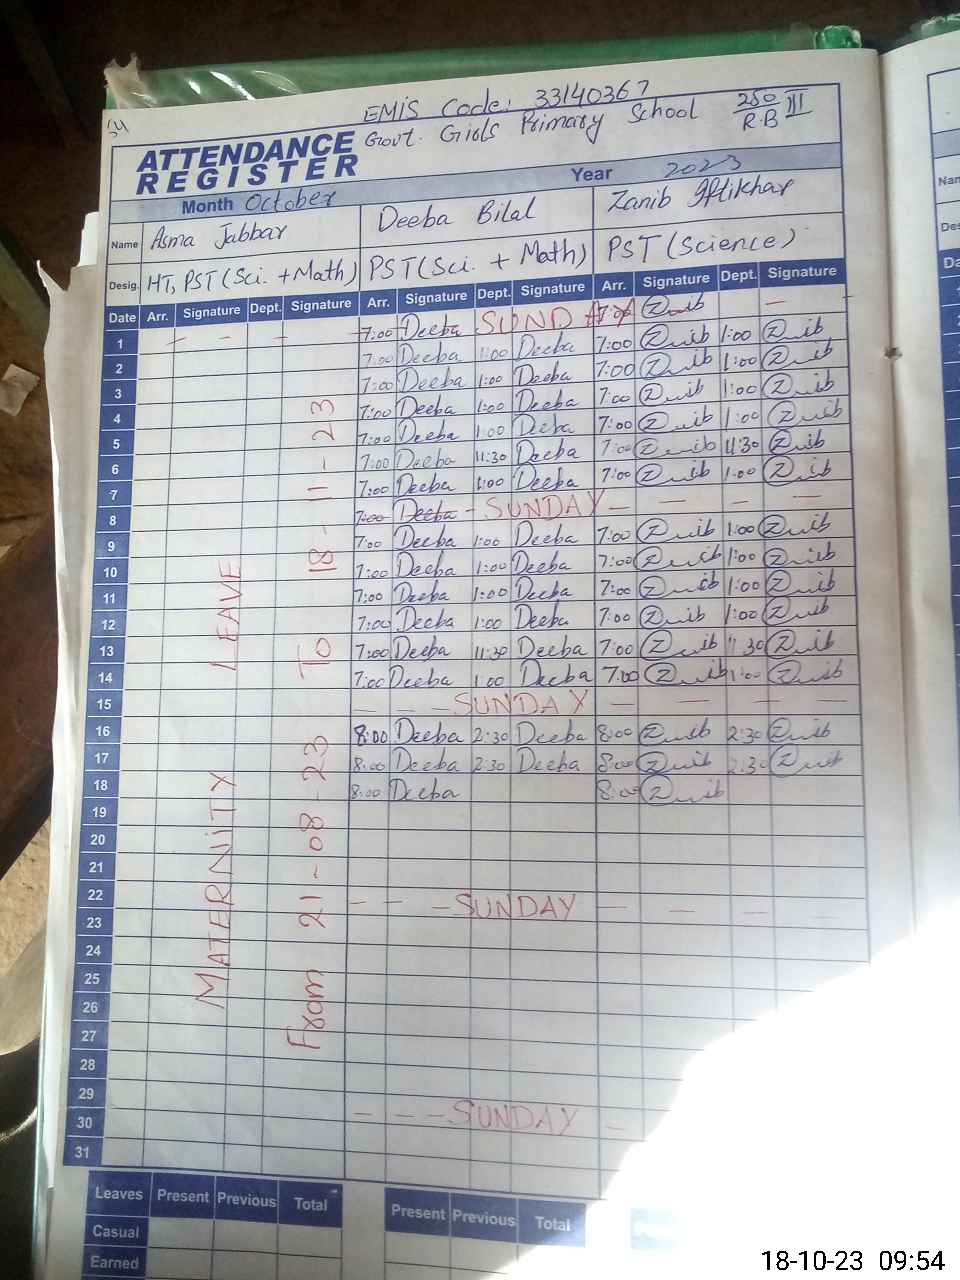 EMIS Code: 33140367
Govt. Girls Primary School 250 R.B III
ATTENDANCE
REGISTER
Month October Year 2023
Name Asma Jabbar Deeba Bilal Zanib Iftikhar
Desig. HT, PST (Sci. + Math) PST (Sci. + Math) PST (Science)
Date Arr. Signature Dept. Signature Arr. Signature Dept. Signature Arr. Signature Dept. Signature
1 - - - - 7:00 Deeba SUNDAY 7:00 Zanib -
2 7:00 Deeba 1:00 Deeba 7:00 Zanib 1:00 Zanib
3 7:00 Deeba 1:00 Deeba 7:00 Zanib 1:00 Zanib
4 7:00 Deeba 1:00 Deeba 7:00 Zanib 1:00 Zanib
5 7:00 Deeba 1:00 Deeba 7:00 Zanib 1:00 Zanib
6 7:00 Deeba 11:30 Deeba 7:00 Zanib 11:30 Zanib
7 7:00 Deeba 1:00 Deeba 7:00 Zanib 1:00 Zanib
8 7:00 Deeba - SUNDAY - - - -
9 7:00 Deeba 1:00 Deeba 7:00 Zanib 1:00 Zanib
10 7:00 Deeba 1:00 Deeba 7:00 Zanib 1:00 Zanib
11 7:00 Deeba 1:00 Deeba 7:00 Zanib 1:00 Zanib
12 7:00 Deeba 1:00 Deeba 7:00 Zanib 1:00 Zanib
13 7:00 Deeba 11:30 Deeba 7:00 Zanib 11:30 Zanib
14 7:00 Deeba 1:00 Deeba 7:00 Zanib 1:00 Zanib
15 - - - SUNDAY - - - -
16 8:00 Deeba 2:30 Deeba 8:00 Zanib 2:30 Zanib
17 8:00 Deeba 2:30 Deeba 8:00 Zanib 2:30 Zanib
18 8:00 Deeba 8:00 Zanib
19
20
21
22 - - - SUNDAY - - - -
23
24
25
26
27
28
29
30 - - - SUNDAY -
31
MATERNITY LEAVE
From 21-08-23 To 18-11-23
Leaves Present Previous Total Present Previous Total
Casual
Earned
18-10-23 09:54